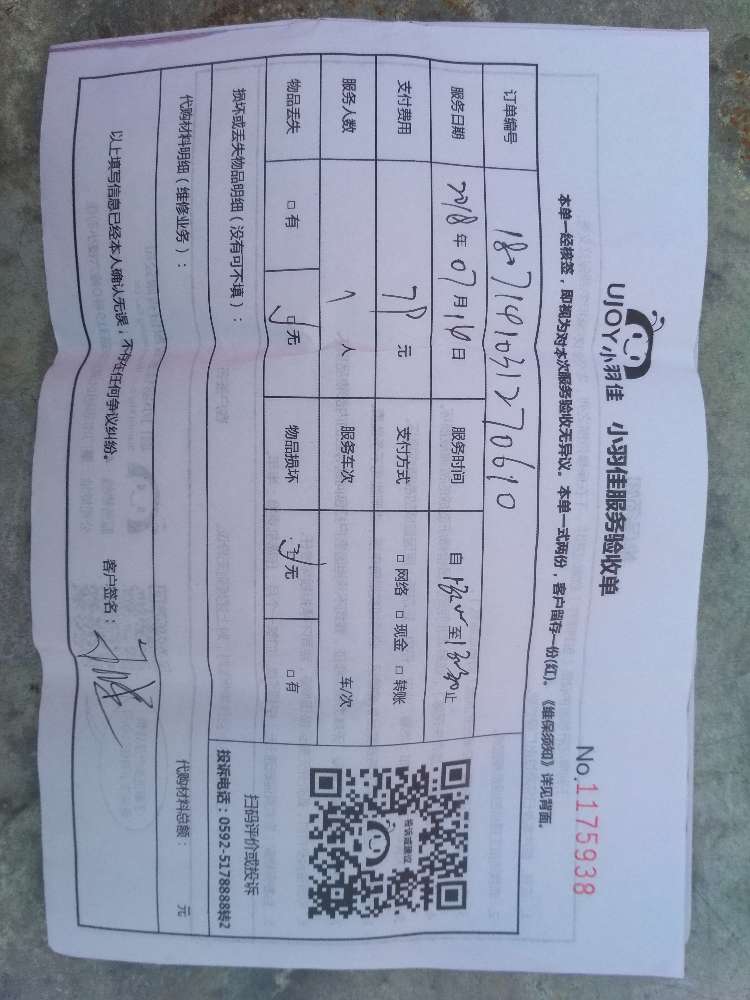 UJOY小羽佳 小羽佳服务验收单
No.1175938
本单一经核签，即视为对本次服务验收无异议。本单一式两份，客户留存一份(红)。《维保须知》详见背面。
订单编号 1807141031270610
服务日期 2018年07月14日 服务时间 自 至 止
支付费用 元 支付方式 □网络 □现金 □转账
服务人数 1 人 服务车次 车/次
物品丢失 □有 □无 物品损坏 □无 □有
损坏或丢失物品明细（没有可不填）：
代购材料明细（维修业务）： 代购材料总额： 元
以上填写信息已经本人确认无误，不存在任何争议纠纷。 客户签名：
投诉或建议
扫码评价或投诉
投诉电话：0592-5178888转2